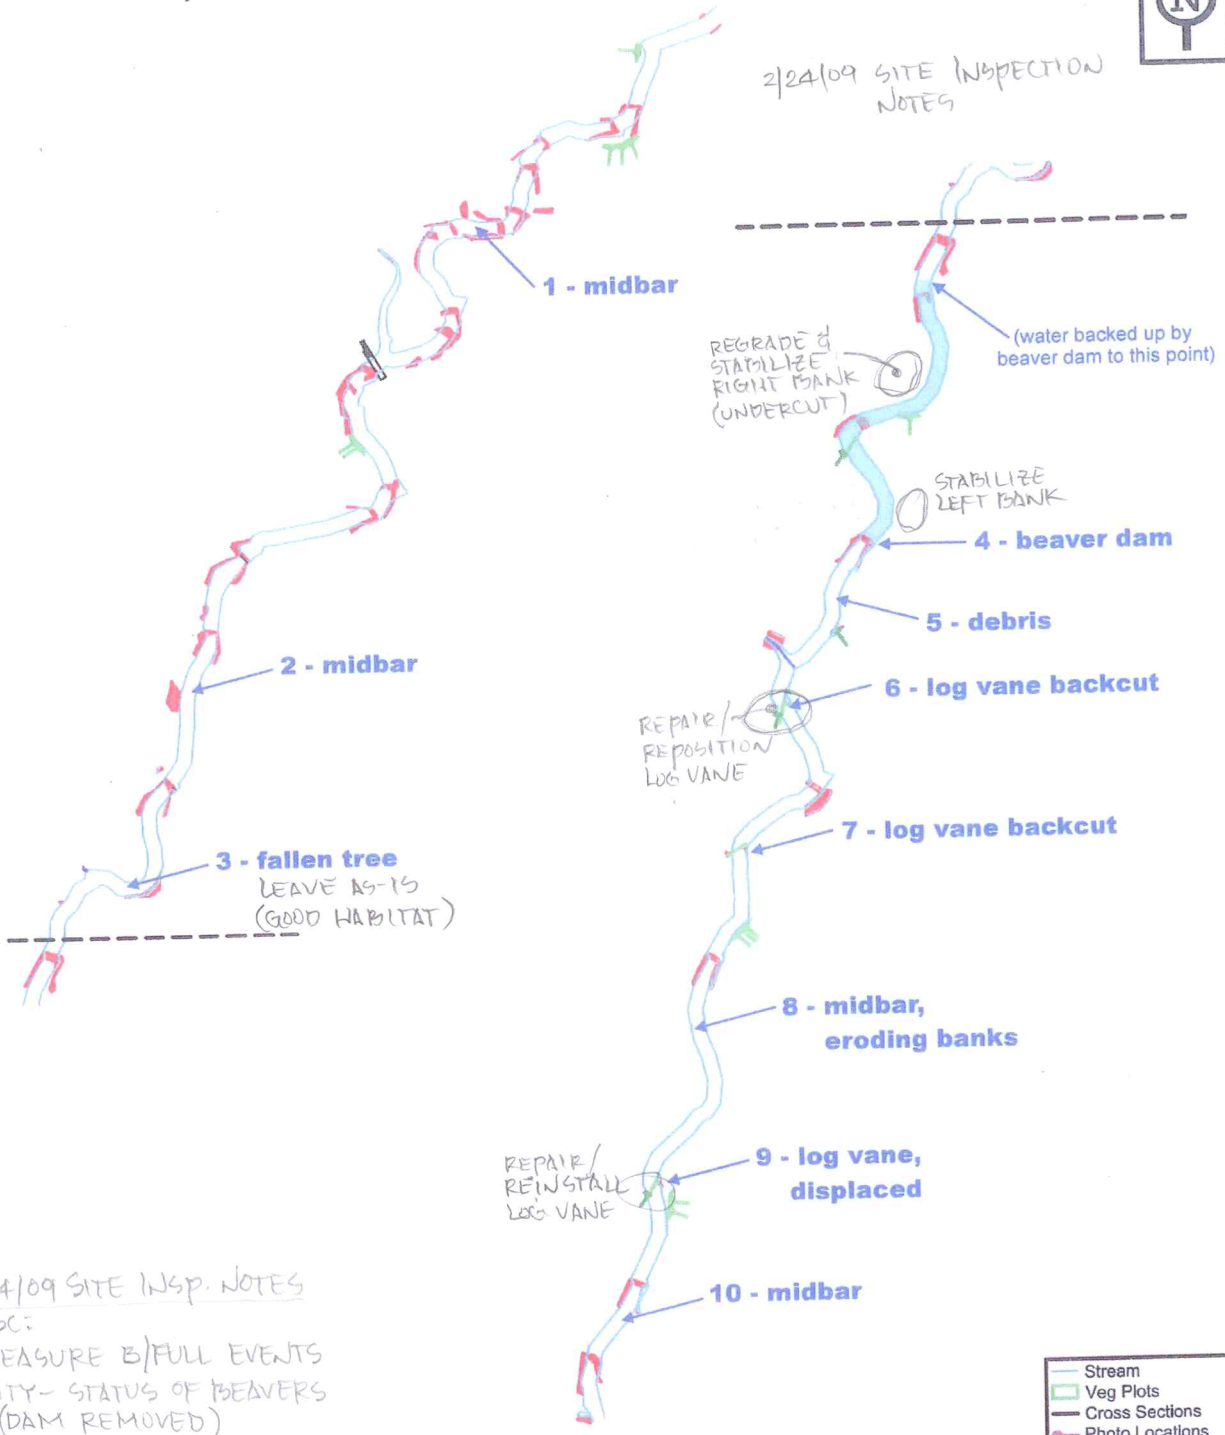 N
2/24/09 SITE INSPECTION
NOTES
1 - midbar
(water backed up by
beaver dam to this point)
REGRADE &
STABILIZE
RIGHT BANK
(UNDERCUT)
STABILIZE
LEFT BANK
4 - beaver dam
5 - debris
2 - midbar
6 - log vane backcut
REPAIR/
REPOSITION
LOG VANE
7 - log vane backcut
3 - fallen tree
LEAVE AS-IS
(GOOD HABITAT)
8 - midbar,
eroding banks
9 - log vane,
displaced
REPAIR/
REINSTALL
LOG VANE
10 - midbar
4/09 SITE INSP. NOTES
EASURE B/FULL EVENTS
TY- STATUS OF BEAVERS
(DAM REMOVED)
Stream
Veg Plots
Cross Sections
Photo Locations